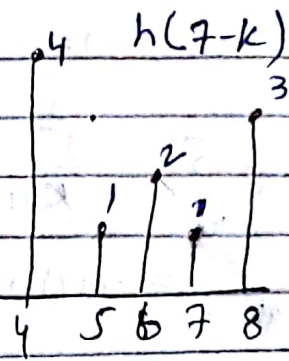 4 h(7-k)
3
2
1 1
4 5 6 7 8